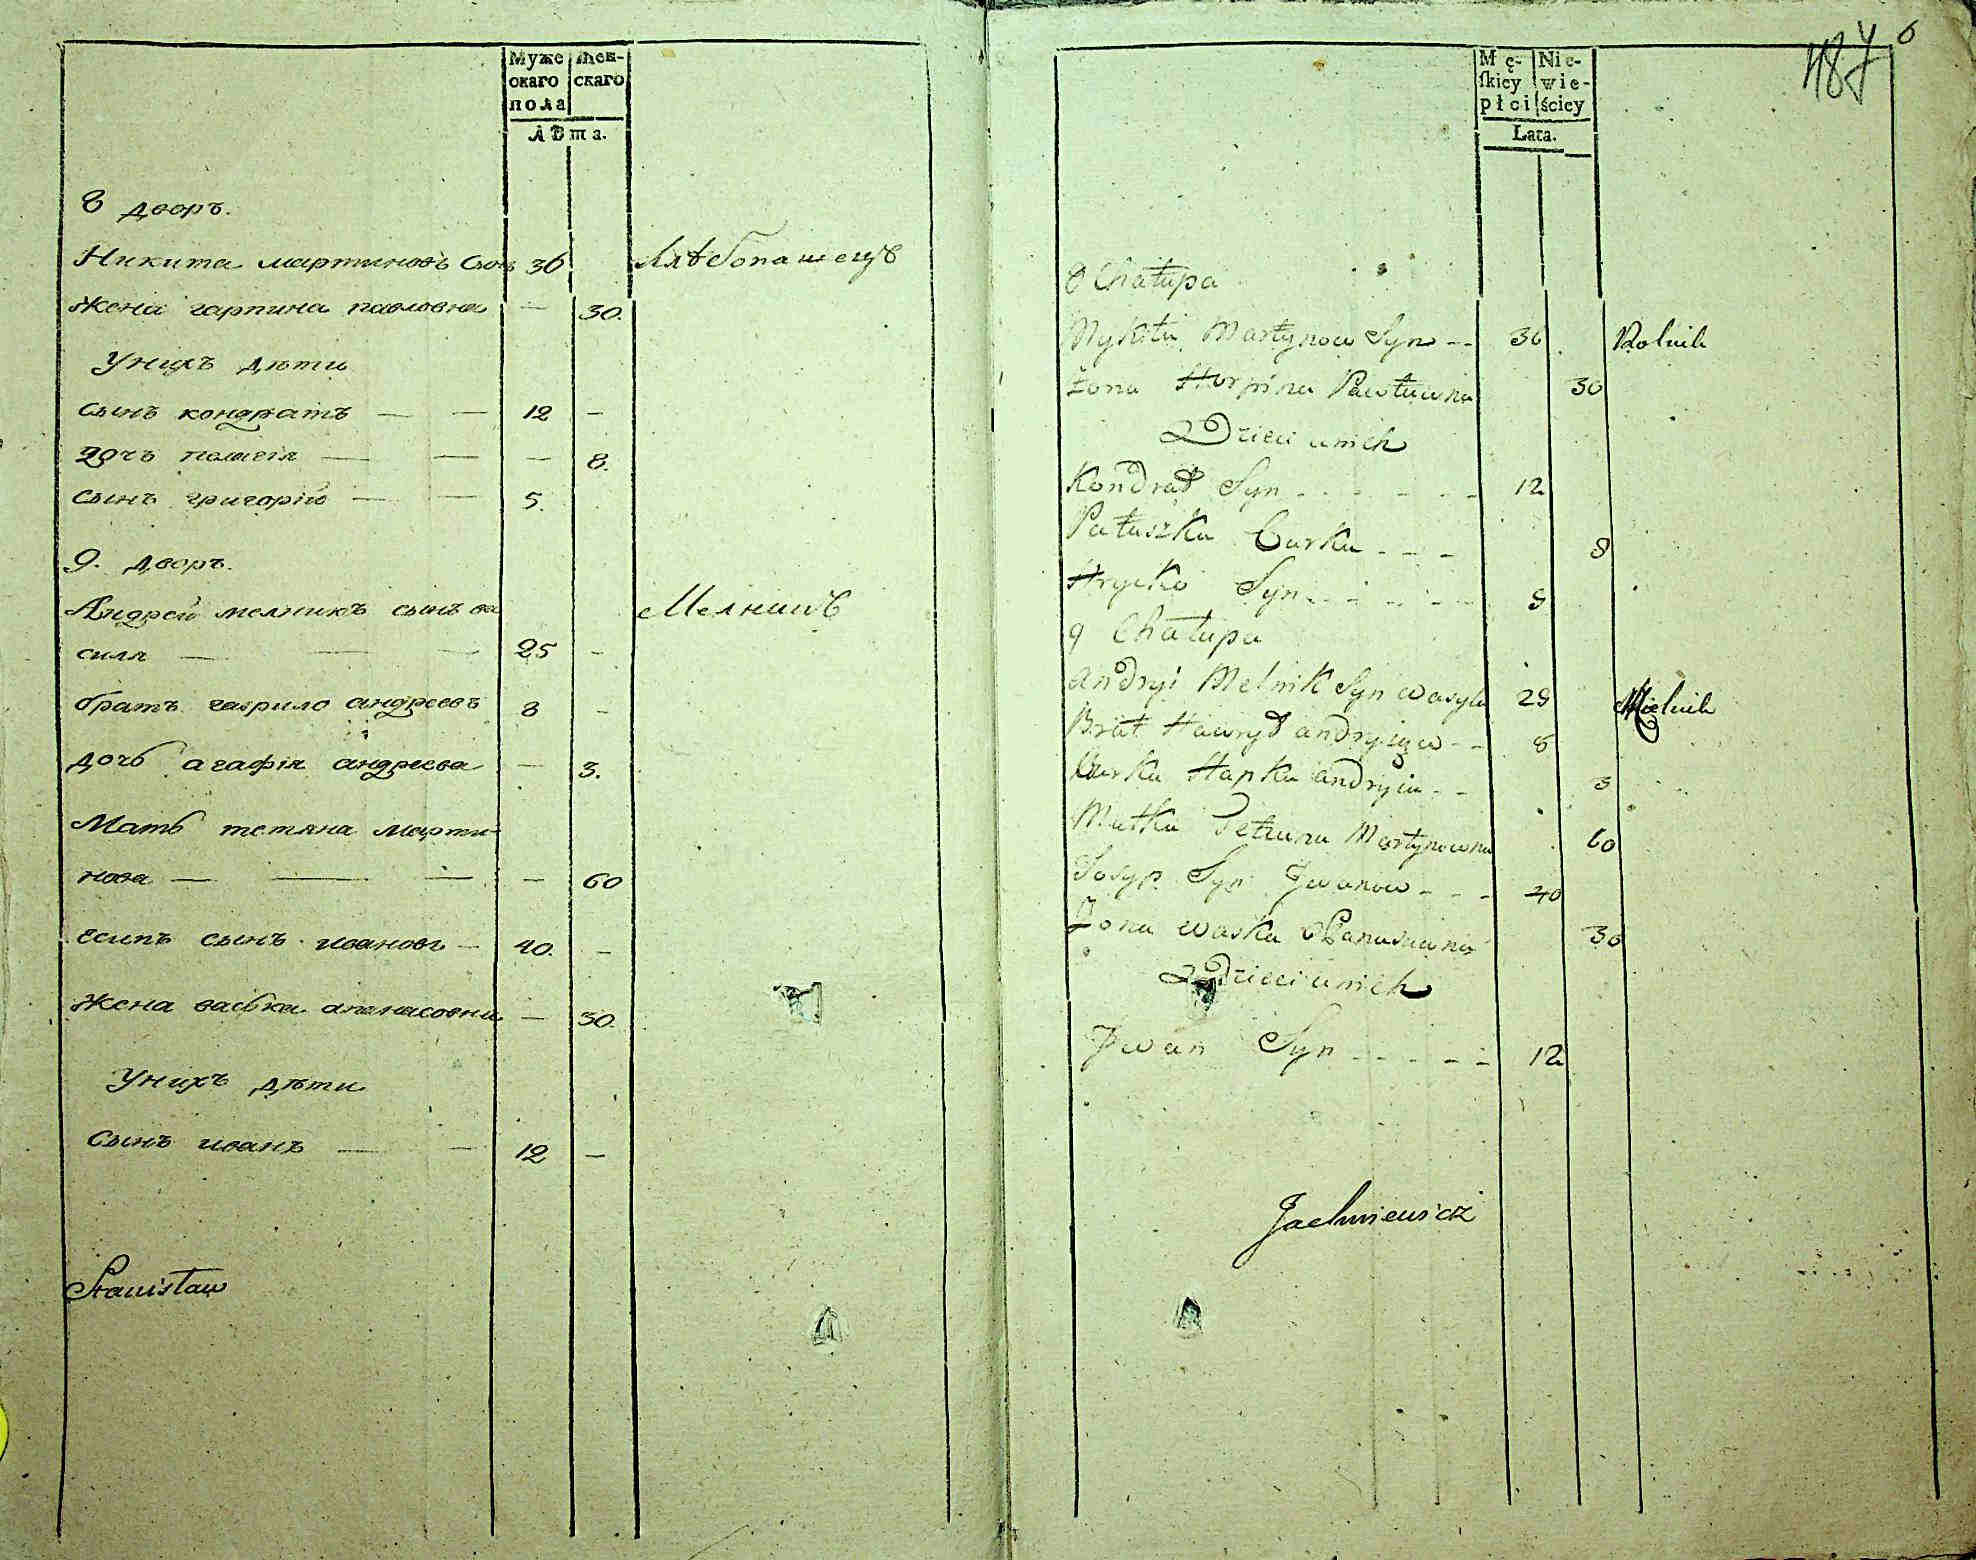 Муже
скаго
пола
Жен-
скаго
Лѣта.
8 дворъ.
Никита мартиновъ Сынъ 36 Хлѣбопашецъ
Жена гарпина павловна — 30.
У нихъ дѣти
Сынъ кондратъ — — 12 —
дочъ палагія — — — 8.
Сынъ григорій — — 5.
9. дворъ.
Андрей мелникъ сынъ ва Мелникъ
силя — — — 25 —
братъ гаврило андреевъ 8 —
дочь агафія андреева — 3.
Мать тетяна марти-
нова — — — — 60
есипъ сынъ ивановъ — 40. —
Жена васька апанасовна — 30.
У нихъ дѣти
Сынъ иванъ — — 12 —
Stanisław
487 6
Mę-
skiey
płci
Nie-
wie-
ściey
Lata.
8 Chałupa
Mykita Martynow Syn -- 36 Rolnik
Żona Horpina Pawłuwna 30
Dzieci unich
Kondrat Syn - - - - - - 12
Pałaszka Curka - - - 8
Hryćko Syn - - - - - 8
9 Chałupa
Andryi Melnik Syn wasyla 28 Mielnik
Brat Hawrył andryiow - - 8
Curka Hapka andryiu - - 3
Matka Tetiana Martynowna 60
Josyp Syn Jwanow - - - 40
Żona waska Panasuwna 30
Dzieci unich
Jwan Syn - - - - - 12
Jachniewicz